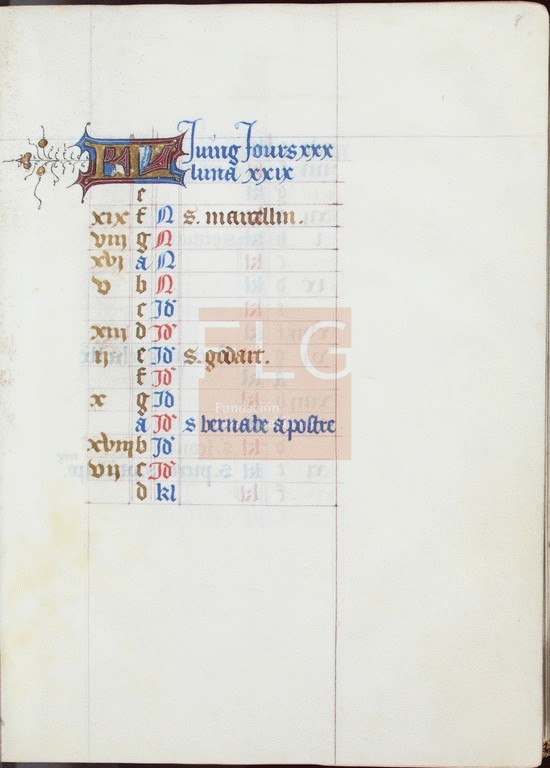 8
KL Juing Jours xxx
luna xxix
e
xix f N s. marcellin.
viii g N
xvi a N
v b N
c Id
xiii d Id
ii e Id s. godart.
f Id
x g Id
a Id s bernabe apostre
xviii b Id
vii c Id
d kl
FLG
Fundación